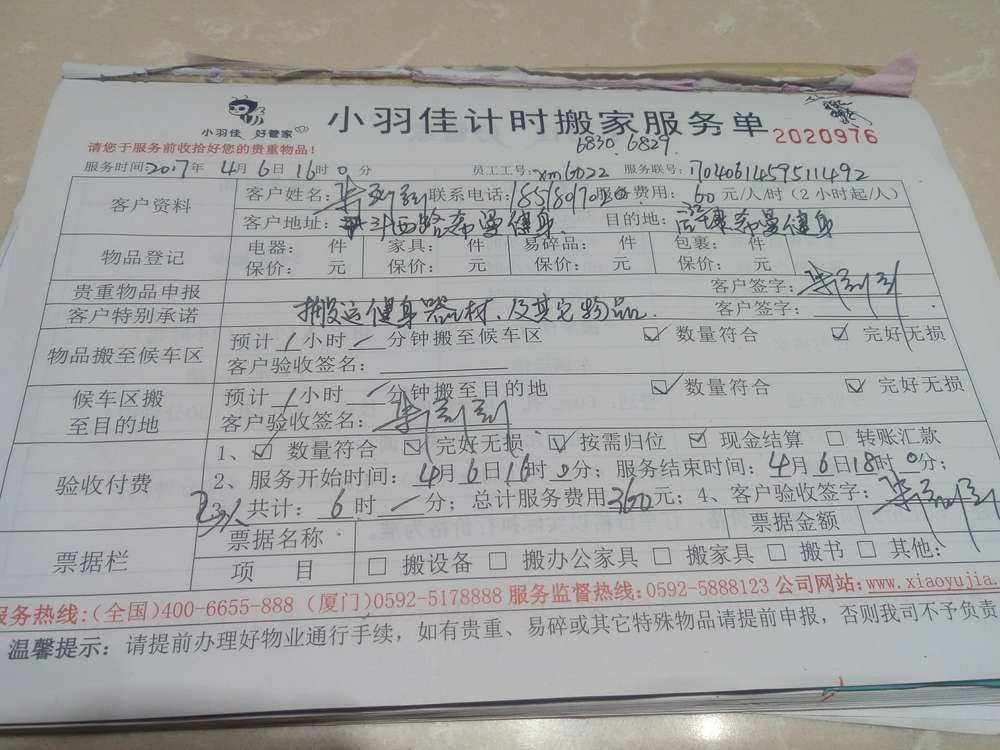 小羽佳 好管家
小羽佳计时搬家服务单
2020976
6830.6829
请您于服务前收拾好您的贵重物品！
服务时间2017年4月6日16时0分 员工工号：xm6022 服务联号：
客户资料 客户姓名： 联系电话： 费用：60元/人/时（2小时起/人）
客户地址： 斗西路希曼健身 目的地： 希曼健身
物品登记 电器： 件 家具： 件 易碎品： 件 包裹： 件
保价： 元 保价： 元 保价： 元 保价： 元
贵重物品申报 客户签字：
客户特别承诺 搬运健身器材、及其它物品. 客户签字：
物品搬至候车区 预计1小时一分钟搬至候车区 数量符合 完好无损
客户验收签名：
候车区搬至目的地 预计1小时一分钟搬至目的地 数量符合 完好无损
客户验收签名：
验收付费 1、 数量符合 完好无损 按需归位 现金结算 转账汇款
2、服务开始时间：4月6日16时0分；服务结束时间：4月6日18时0分；
3人共计：6时一分；总计服务费用360元；4、客户验收签字：
票据栏 票据名称 票据金额
项 目 搬设备 搬办公家具 搬家具 搬书 其他：
服务热线：(全国)400-6655-888 (厦门)0592-5178888 服务监督热线：0592-5888123 公司网站：www.xiaoyujia.
温馨提示：请提前办理好物业通行手续，如有贵重、易碎或其它特殊物品请提前申报，否则我司不予负责